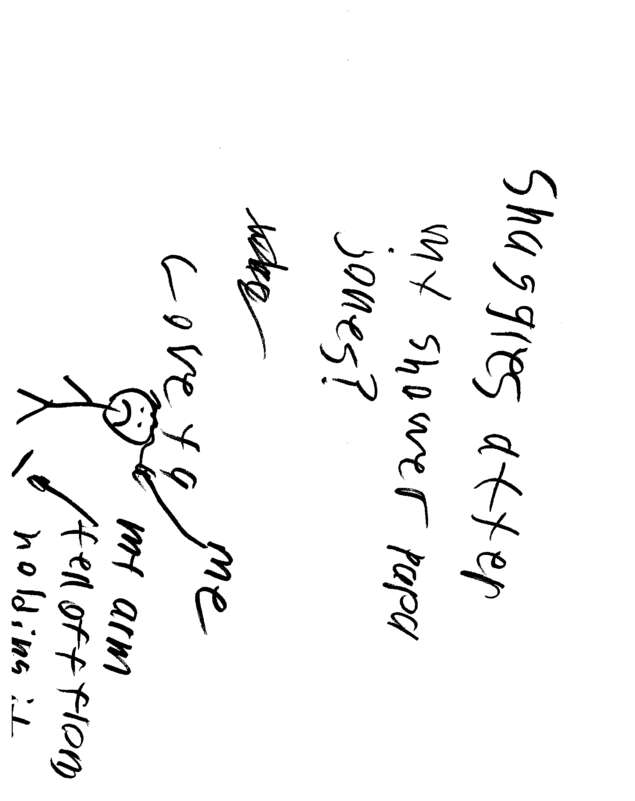 Snuggles after
my shower papa
jones?
Love ya
me
my arm
fell off from
holding it